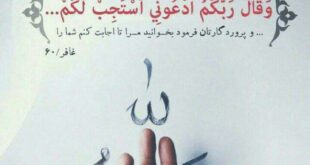 وَقَالَ رَبُّكُمُ ادْعُونِي أَسْتَجِبْ لَكُمْ...
... و پروردگارتان فرمود بخوانید مرا تا اجابت کنم شما را
غافر/۶۰
لله